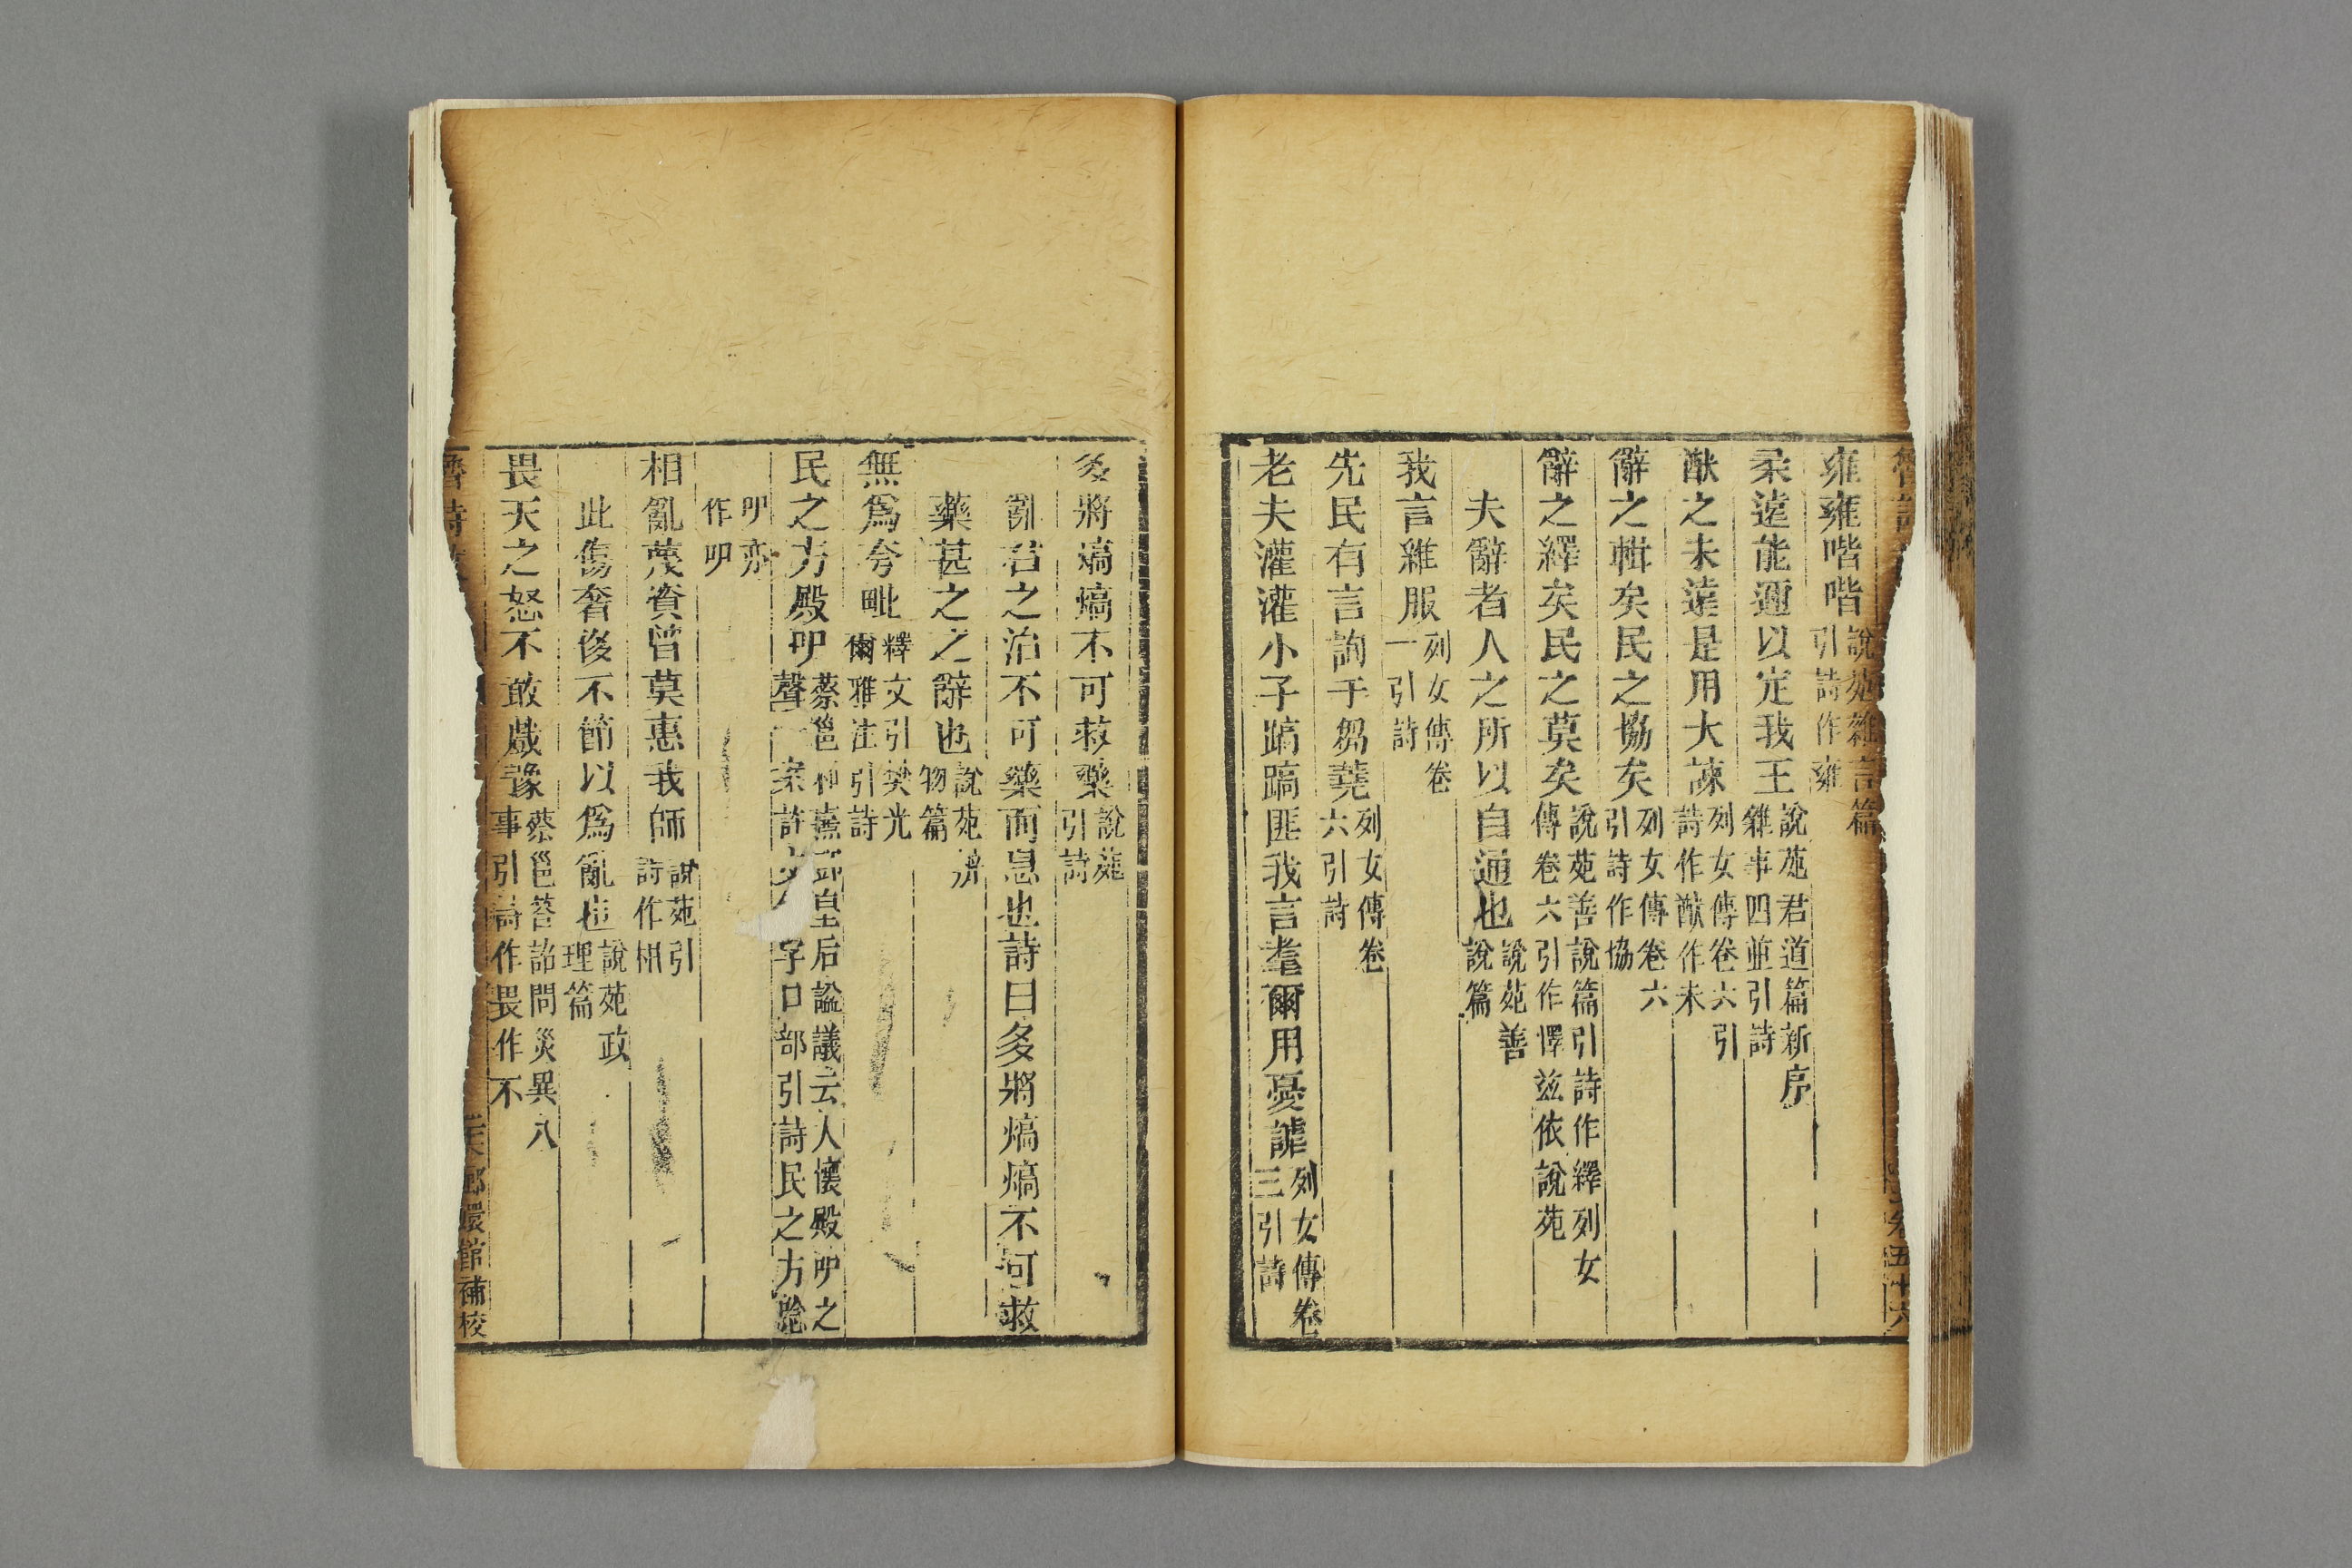 雍雍喈喈說苑雜言篇引詩作雍
柔遠能邇以定我王說苑君道篇新序雜事四並引詩
猷之未遠是用大諫列女傳卷六引詩作猷作未
辭之輯矣民之協矣列女傳卷六引詩作協
辭之繹矣民之莫矣說苑善說篇引詩作繹列女傳卷六引作懌兹依說苑
夫辭者人之所以自通也說苑善說篇
我言維服列女傳卷一引詩
先民有言詢于芻蕘列女傳卷六引詩
老夫灌灌小子蹻蹻匪我言耄爾用憂謔列女傳卷三引詩
多將熇熇不可救藥說苑引詩
亂君之治不可藥而息也詩曰多將熇熇不可救
藥甚之之辭也說苑辨物篇
無爲夸毗釋文引樊光爾雅注引詩
民之方殿吚蔡邕和熹鄧皇后謚議云人懷殿吚之聲案許字口部引詩民之方唸
吚亦作吚
相亂蔑資曾莫惠我師說苑引詩作相
此傷奢侈不節以爲亂也說苑政理篇
畏天之怒不敢戲豫蔡邕荅詔問災異八事引詩作畏作不
郎環館補校